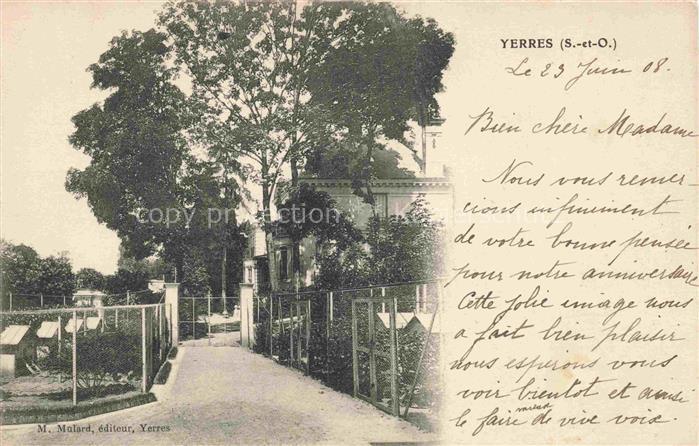 YERRES (S.-et-O.)
Le 23 Juin 08.
Bien chère Madame
Nous vous remer
cions infiniment
de votre bonne pensée
pour notre anniversaire
Cette jolie image nous
a fait bien plaisir
nous esperons vous
voir bientot et
le faire de vive voix.
copy protection
M. Mulard, éditeur, Yerres